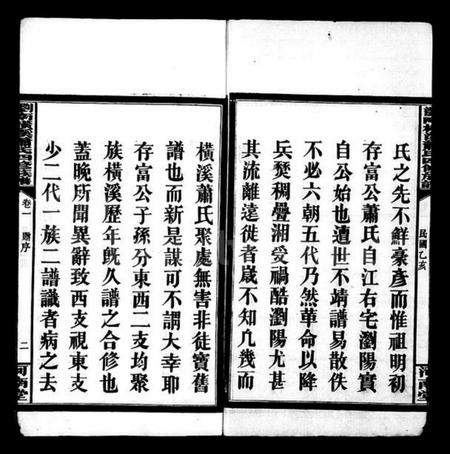 氏之先不鮮豪彥而惟祖明初
存富公蕭氏自江右宅瀏陽實
自公始也遭世不靖譜易散佚
不必六朝五代乃然革命以降
兵燹稠疊湘受禍酷瀏陽尤甚
其流離遠徙者歲不知凡幾而
民國乙亥
橫溪蕭氏聚處無害非徒寶舊
譜也而新是謀可不謂大幸耶
存富公于孫分東西二支均聚
族橫溪歷年旣久譜之合修也
蓋晚所聞異辭致西支視東支
少二代一族二譜識者病之去
卷一 贈序
二
河南堂